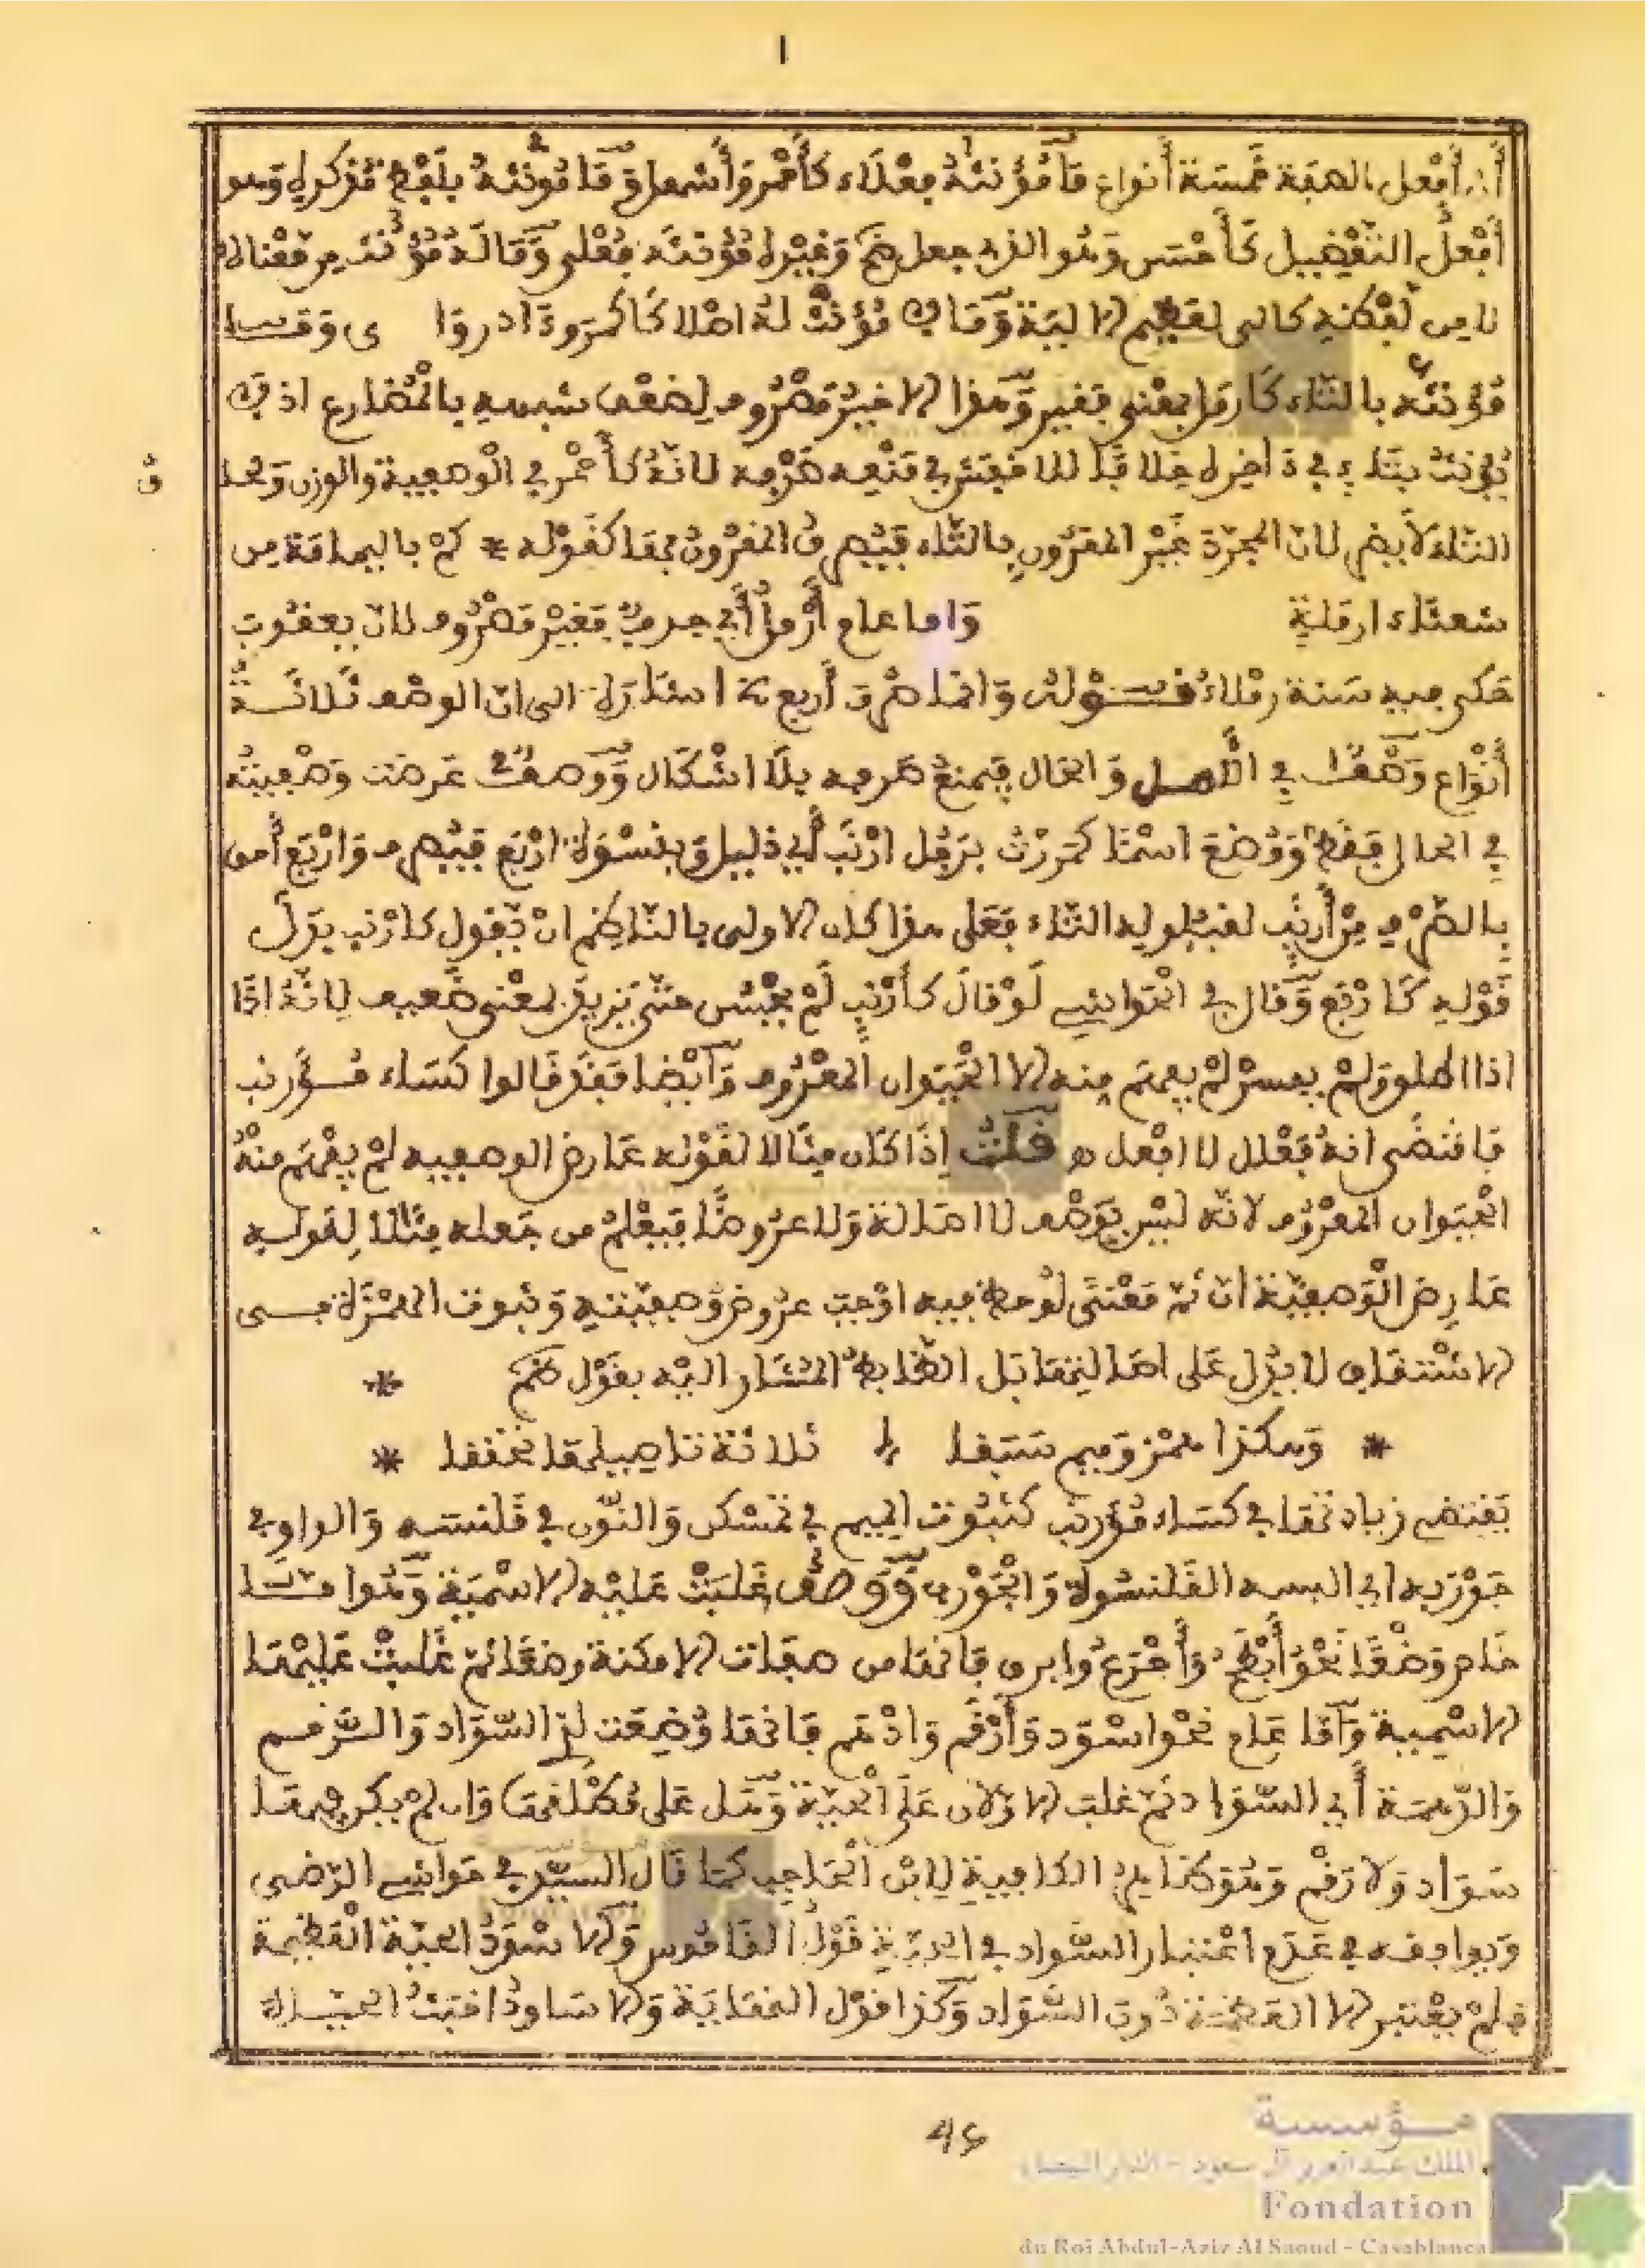 أن أفعل الصفة خمسة أنواع ما مؤنثه فعلاء كأحمر وأشهل وما مؤنثه بلفظ مذكره وهو
أفعل التفضيل كأحسن وهو الذي جعل وغيره مؤنثه فعلى وما له مؤنث من معناه لا
من لفظه كالى لعظيم الالية وما لا مؤنث له اصلا كأكمر وءادر وا ى وقسا
مؤنثه بالتاء كأرمل بمعنى فقير وهذا الاخير مصروف لضعف شبهه بالمضارع اذ لا
يؤنث بتاء في ءاخره خلافا للاخفش في منعه صرفه لانه كأحمر في الوصفية والوزن
التاء لأن المجرد غير المقرون بالتاء فيصرف المقرون بها كقوله * كم باليمامة من
شعثاء ارملة واما عام أرمل أي جدب فغير مصروف لان يعقوب
حكى فيه سنة رملاء قوله وانما صرف أربع اشار الى ان الوصف ثلاثة
أنواع وصف في الأصل والحال فيمنع صرفه بلا اشكال ووصف عرضت وصفيته
في الحال فقط ووضع اسما كمررت برجل ارنب أي ذليل وبنسوة اربع فيصرف واربع أحق
بالصرف من أرنب لقبوله التاء فعلى هذا كان الاولى بالناظم ان يقول كارنب بدل
قوله كاربع وقال في الحواشي لو قال كأرنب لم يحسن حتى يزيد بمعنى ضعيف لانه اذا
اذا اطلق ولم يفسر لم يفهم منه الا الحيوان المعروف وأيضا فقد قالوا كساء مؤرنب
فاقتضى انه فعلل لا افعل ه قلت إذا كان مثالا لقوله عارض الوصفية لم يفهم منه
الحيوان المعروف لانه ليس بوصف لا اصالة ولا عروضا فيعلم من جعله مثالا لقوله
عارض الوصفية ان ثم معنى لوحظ فيه اوجب عروض وصفيته وثبوت الهمزة فى
الاشتقاق لا يدل على اصالتها بل الضابط المشار اليه بقول نظم *
* وهكذا همز وميم سبقا ثلاثة تاصيلها تحققا *
يقتضي زيادتها في كساء مؤرنب كثبوت الميم في تمسكن والنون في قلنسه والواو في
جوربه اي البسه القلنسوة والجورب ووصف غلبت عليه الاسمية وهو اما
خاص وضعا نحو أبطح وأجرع وابرق فانها من صفات الامكنة وضعا ثم غلبت عليها
الاسمية وأما عام نحو اسود وأرقم وادهم فانها وضعت لذي السواد والرقم
والدهمة أي السواد ثم غلب الاولان على الحية وهل على مطلقها وان لم يكن فيها
سواد ولا رقم وهو ظاهر الكافية لابن الحاجب كما قال السيد في حواشي الرضى
ويوافقه في عدم اعتبار السواد في الحية قول القاموس والاسود الحية العظيمة
فلم يعتبر الا العظمة دون السواد وكذا قول النهاية والاساود اخبث الحيات
46
مؤسسة
الملك عبد العزيز آل سعود - الدار البيضاء
Fondation
du Roi Abdul-Aziz Al Saoud - Casablanca